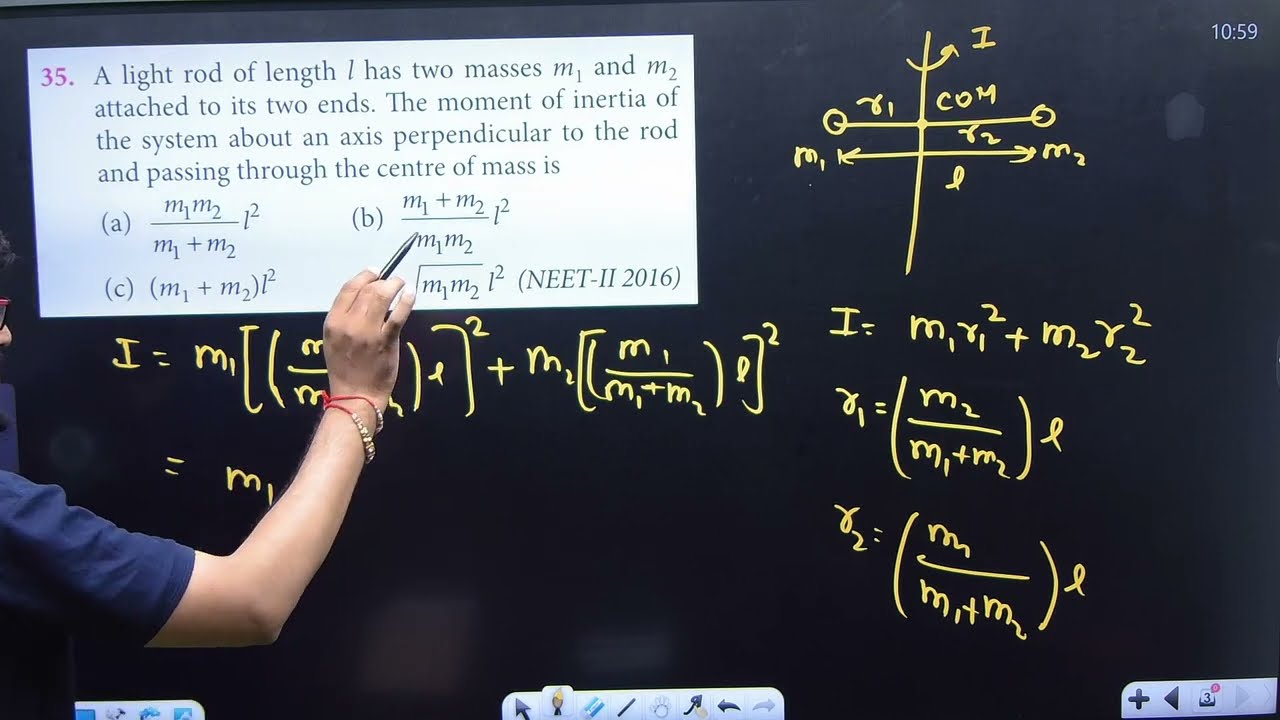 10:59
35. A light rod of length l has two masses m₁ and m₂
attached to its two ends. The moment of inertia of
the system about an axis perpendicular to the rod
and passing through the centre of mass is
(a) m₁m₂/(m₁ + m₂) l² (b) (m₁ + m₂)/(m₁m₂) l²
(c) (m₁ + m₂)l² √(m₁m₂) l² (NEET-II 2016)
I
r₁ COM
r₂
m₁ m₂
l
I = m₁[( ) l]² + m₂[(m₁/(m₁+m₂)) l]²
= m₁
I = m₁r₁² + m₂r₂²
r₁ = (m₂/(m₁+m₂)) l
r₂ = (m₁/(m₁+m₂)) l
3